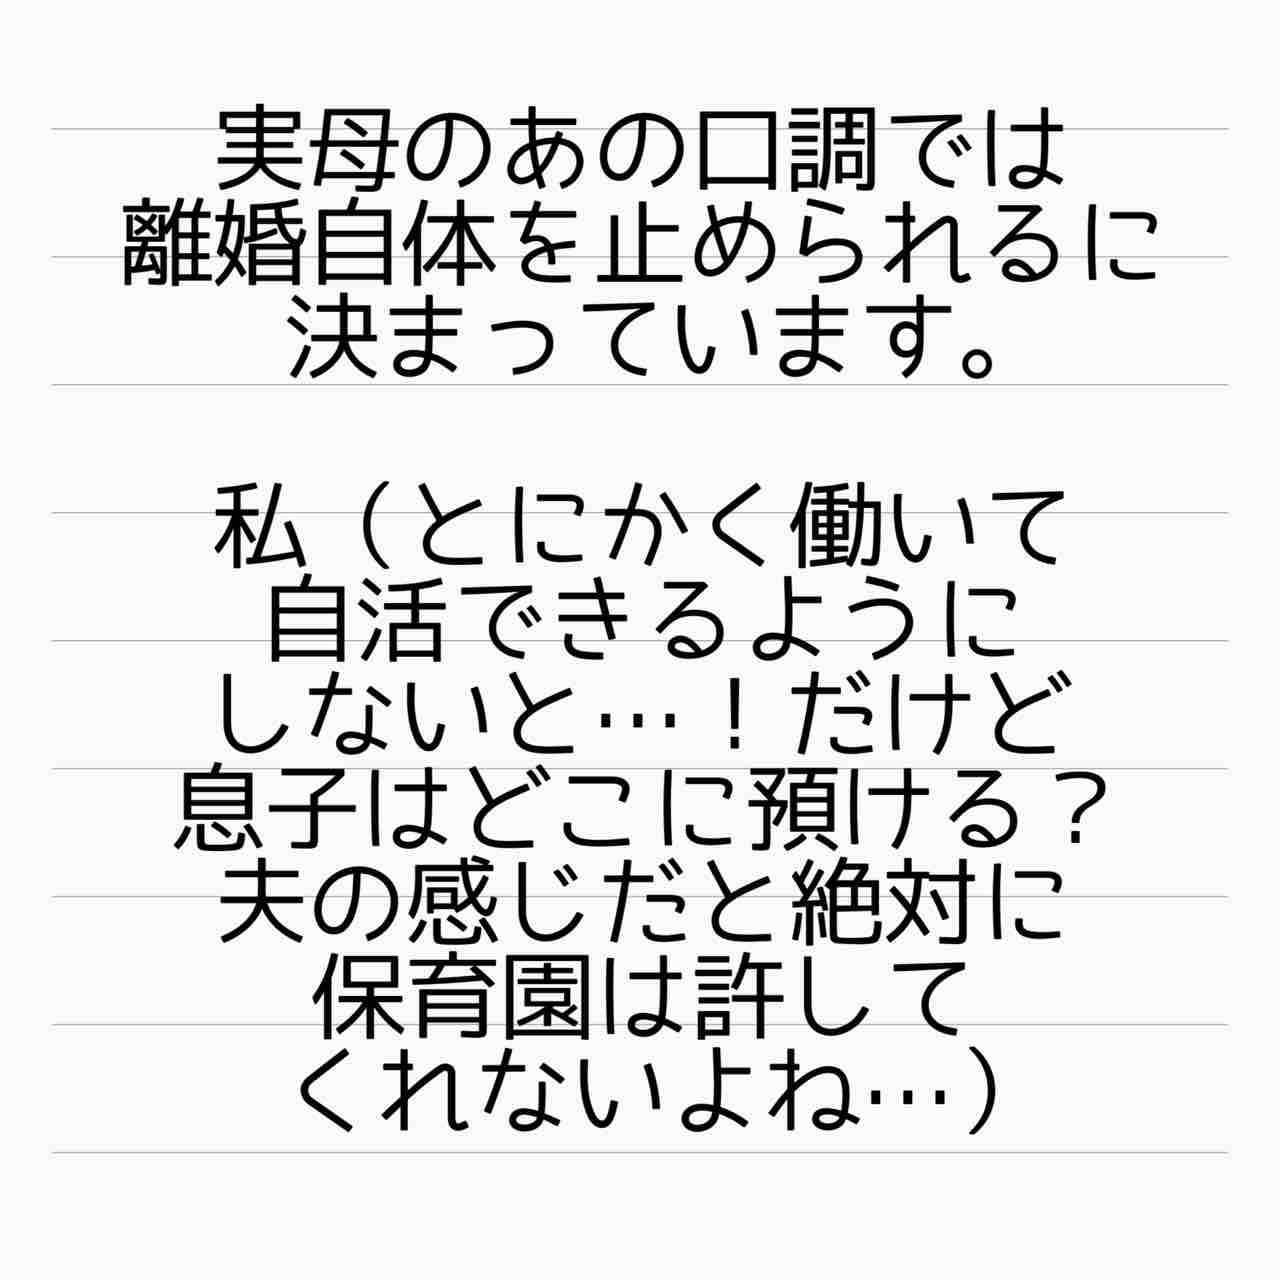 実母のあの口調では
離婚自体を止められるに
決まっています。
私（とにかく働いて
自活できるように
しないと…！だけど
息子はどこに預ける？
夫の感じだと絶対に
保育園は許して
くれないよね…）